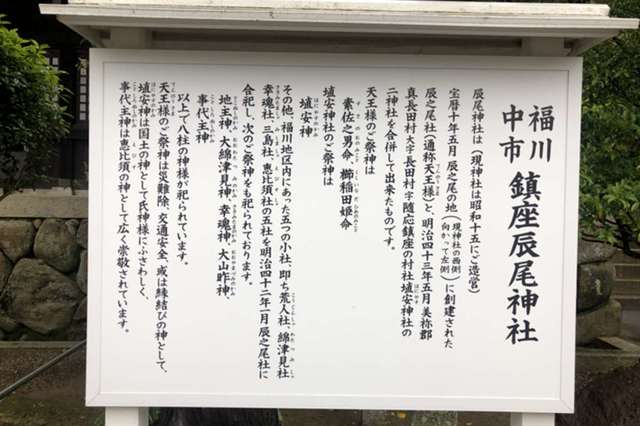 福川
中市 鎮座辰尾神社
辰尾神社は(現神社は昭和十五にご造営)
宝暦十年五月 辰之尾の地(現神社の西側 向かって左側)に創建された
辰之尾社(通称天王様)と、明治四十三年五月 美祢郡
真長田村 大字長田村字随応鎮座の村社埴安神社の
二神社を合併して出来たものです。
天王様のご祭神は
素佐之男命、櫛稲田姫命
埴安神社のご祭神は
埴安神
その他、福川地区内にあった五つの小社、即ち荒人社、綿津見社
幸魂社、三島社、恵比須社の五社を明治四十二年一月 辰之尾社に
合祀し、次のご祭神をも祀られております。
地主神、大綿津見神、幸魂神、大山昨神、
事代主神
以上で八柱の神様が祀られています。
天王様のご祭神は災難除、交通安全、或は縁結びの神として、
埴安神は国土の神として氏神様にふさわしく、
事代主神は恵比須の神として広く崇敬されています。